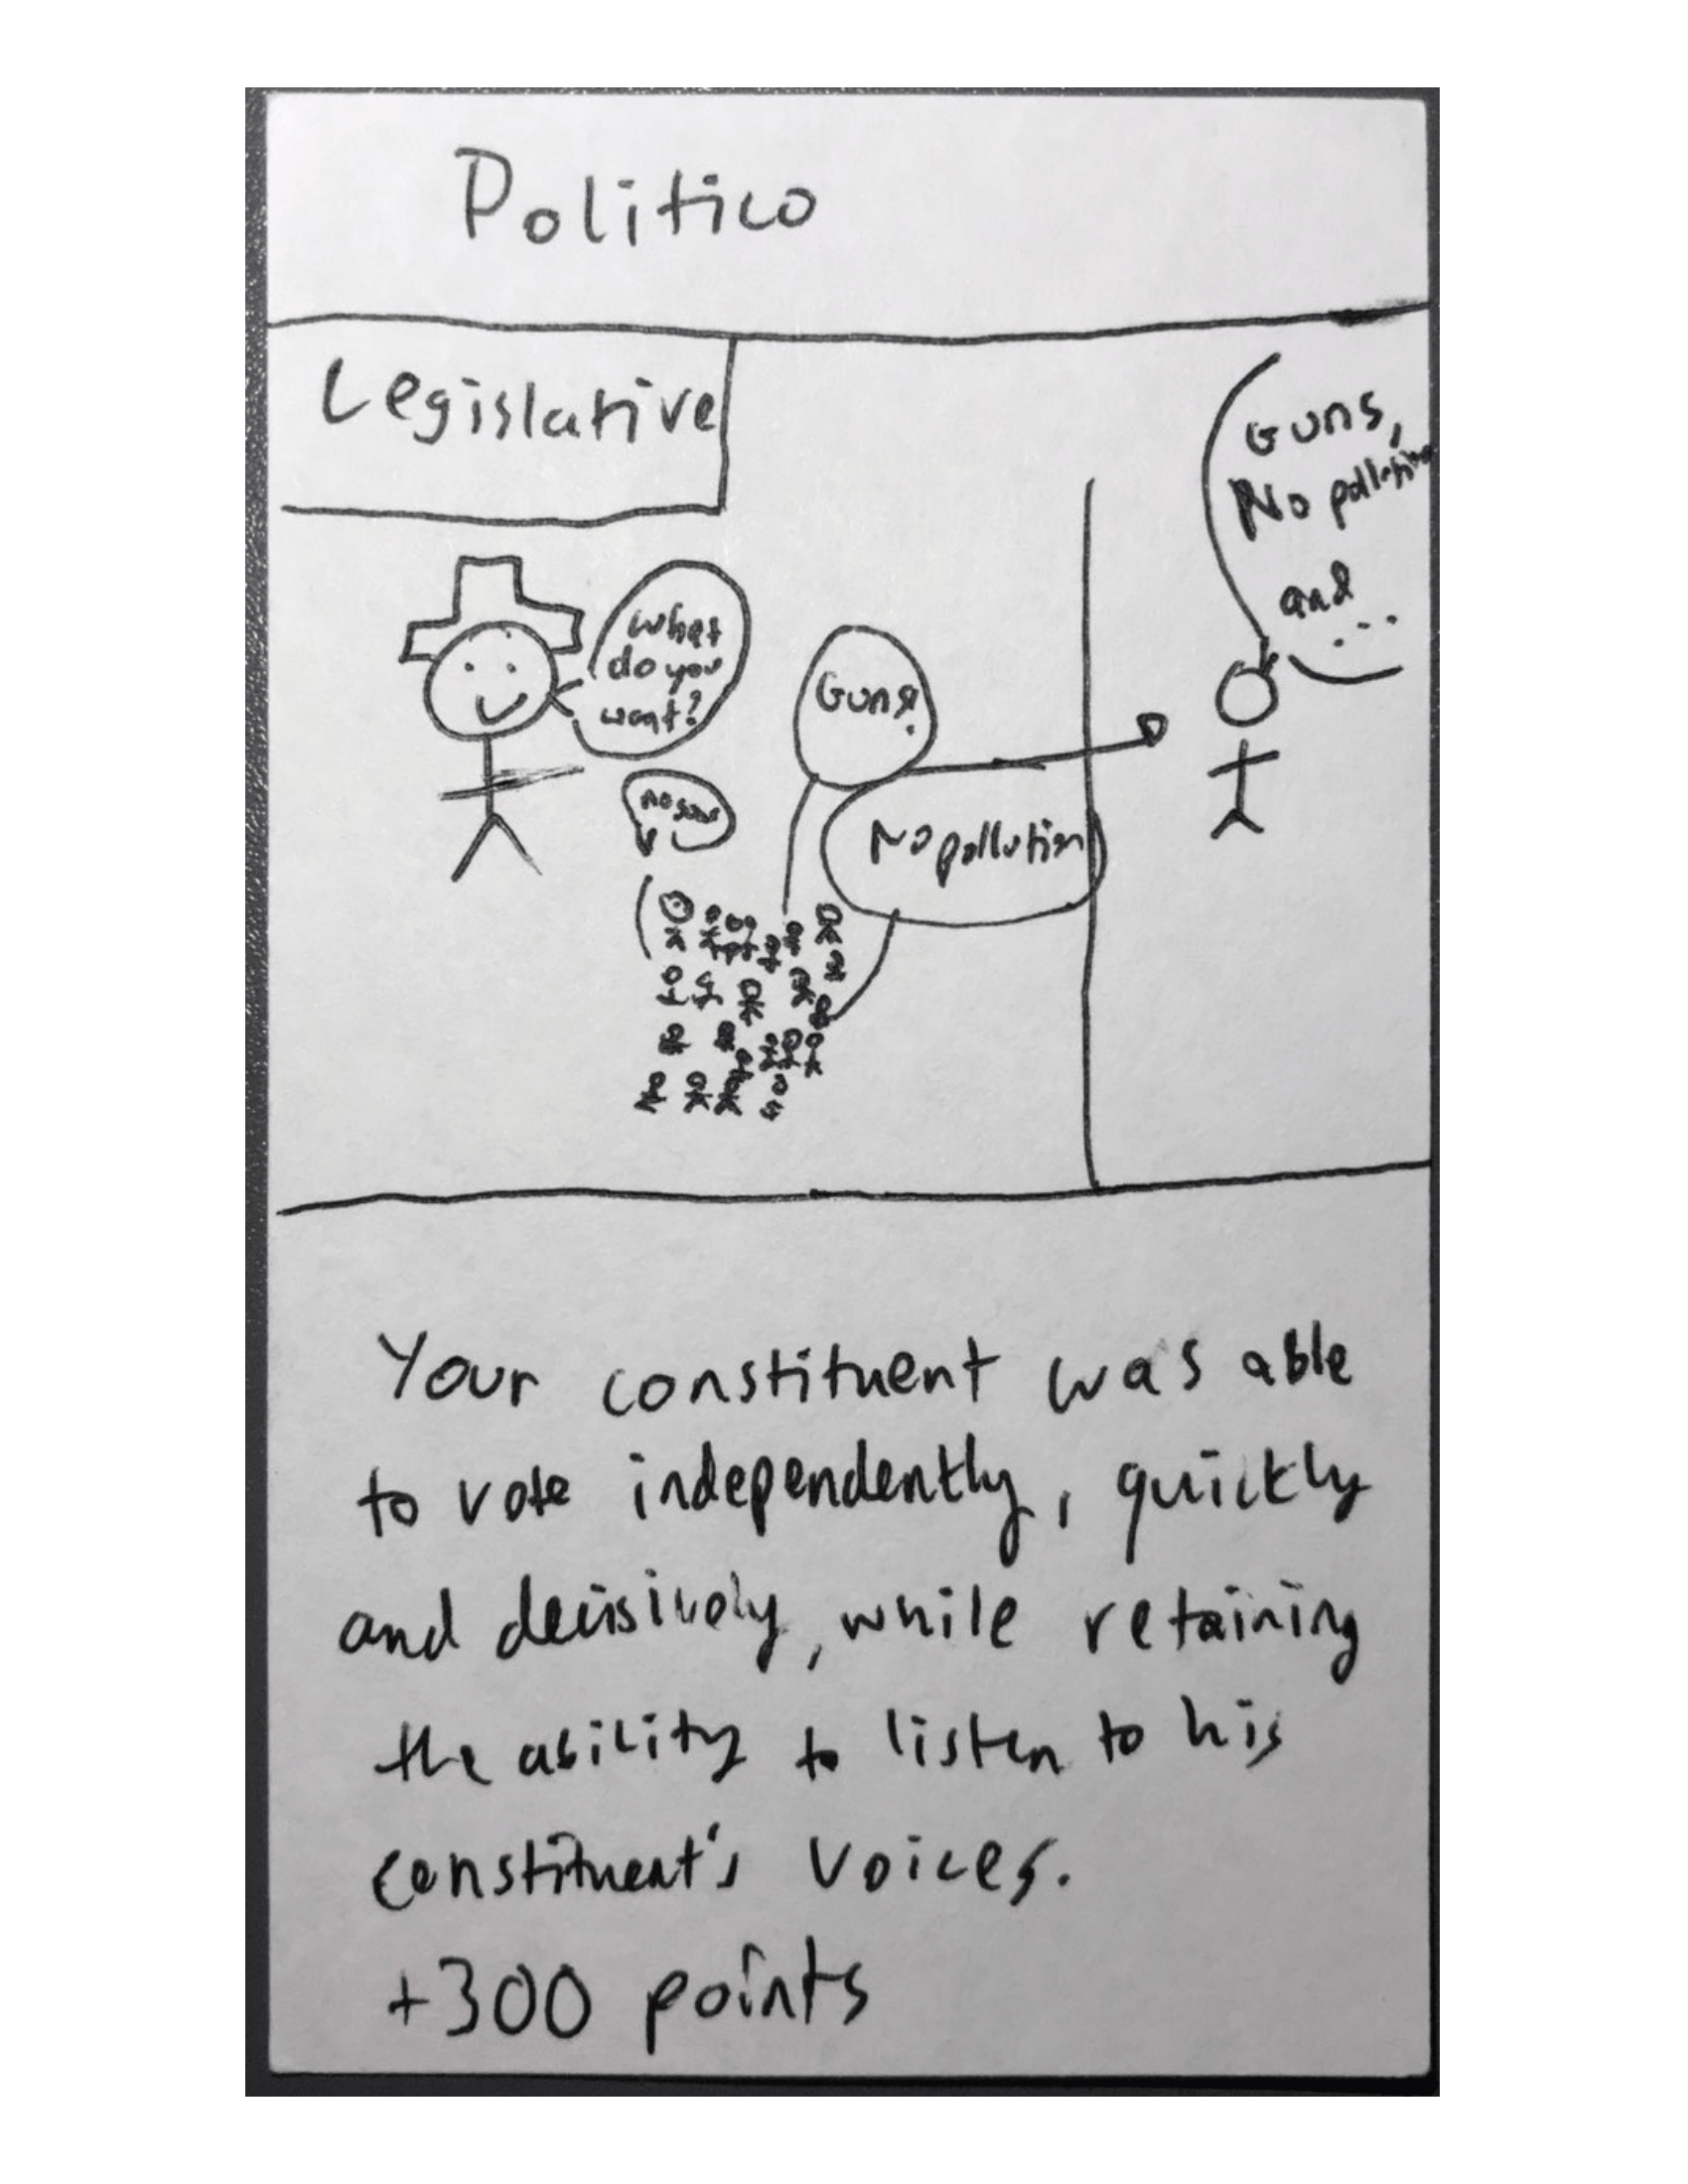 Politico
Legislative
What
do you
want?
Guns,
No pollution
and
...
Guns
No pollution
Your constituent was able
to vote independently, quickly
and decisively, while retaining
the ability to listen to his
constituent's voices.
+300 points